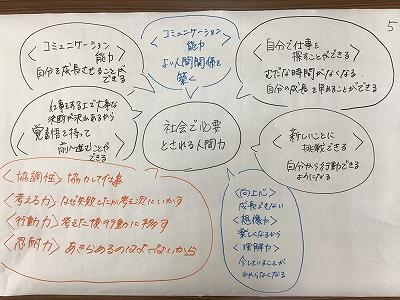 5
<コミュニケーション
能力>
自分を成長させることが
できる
<コミュニケーション
能力>
よい人間関係を
築く
<自分で仕事を
探すことができる>
むだな時間がなくなる
自分の成長を早めることができる
仕事をする上で大事な
決断が沢山あるから
<覚悟を持って
前へ進むことが
できる>
社会で必要
とされる人間力
<新しいことに
挑戦できる>
自分から行動できる
ようになる
<協調性> 協力して仕事
<考える力> なぜ失敗したか考え次にいかす
<行動力> 考えた後行動に移す
<忍耐力> あきらめるのはよくないから
<向上心>
<想像力>
楽しくなるから
<理解力>
今していることが
わからなくなる